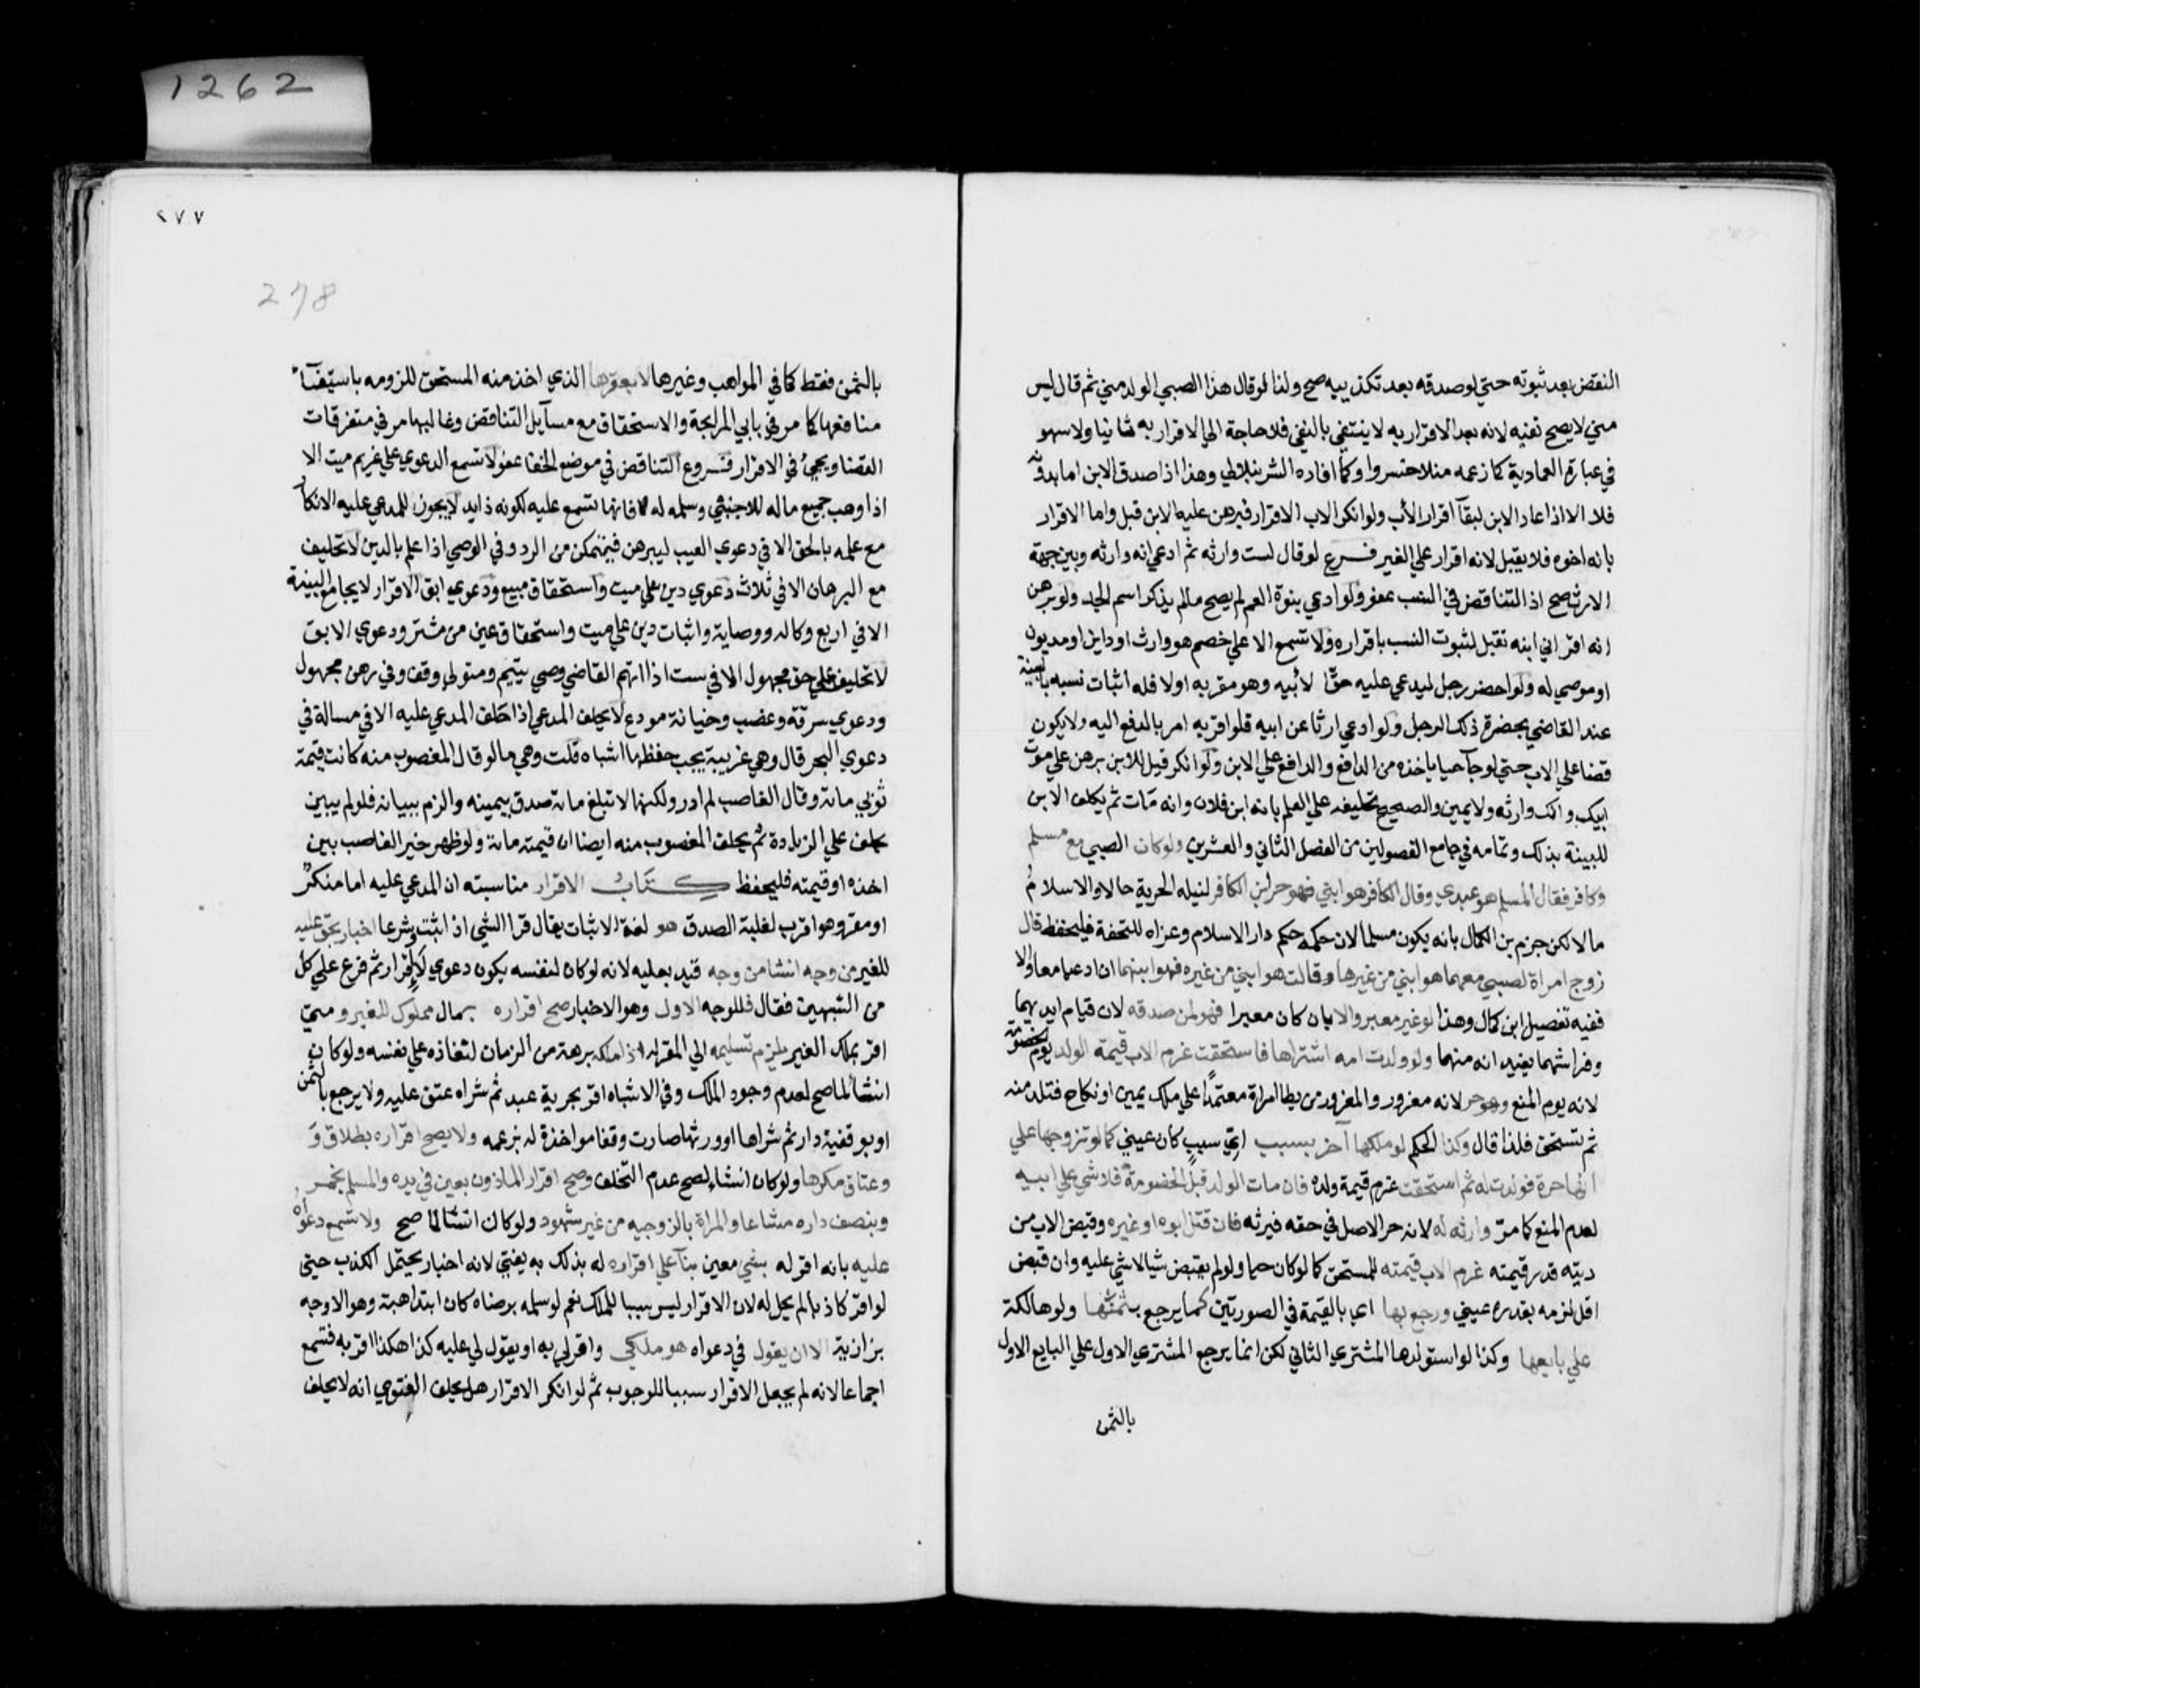 1262
النقض بعد ثبوته حتي لو صدقه بعد تكذيبه صح ولذا لو قال هذا الصبي الولد مني ثم قال ليس
مني لا يصح نفيه لانه بعد الاقرار به لا ينتفي بالنفي فلا حاجة الي الاقرار به ثانيا ولا سهو
في عبارة العمادية كما زعمه منلا خسروا وكما افاده الشرنبلالي وهذا اذا صدق الابن اما بدونه
فلا الا اذا عاد الابن لبقآ اقرار الأب ولو انكر الاب الاقرار فبرهن عليه الابن قبل واما الاقرار
بانه اخوه فلا يقبل لانه اقرار علي الغير فــرع لو قال لست وارثه ثم ادعي انه وارثه وبين جهة
الارث صح اذ التناقض في النسب عفو ولو ادعي بنوة العم لم يصح مالم يذكر اسم الجد ولو برهن
انه اقر اني ابنه تقبل لثبوت النسب باقراره ولا تسمع الا علي خصم هو وارث او داين او مديون
او موصي له ولو احضر رجل ليدعي عليه حقّا لأبيه وهو مقر به اولا فله اثبات نسبه بالبينة
عند القاضي بحضرة ذلك الرجل ولو ادعي ارثا عن ابيه فلو اقر به امر بالدفع اليه ولا يكون
قضا علي الاب حتي لو جآ حيا ياخذه من الدافع والدافع علي الابن ولو انكر قيل للابن برهن علي موت
ابيك وانك وارثه ولا يمين والصحيح تحليفه علي العلم بانه ابن فلان وانه مات ثم يكلف الابن
للبينة بذلك وتمامه في جامع الفصولين من الفصل الثاني والعشرين ولو كان الصبي مع مسلم
وكافر فقال المسلم هو عبدي وقال الكافر هو ابني فهو حر ابن الكافر لنيله الحرية حالا والاسلام
مالا لكن جزم بن الكمال بانه يكون مسلما لان حكمه حكم دار الاسلام وعزاه للتحفة فليحفظ قال
زوج امراة لصبي معهما هو ابني من غيرها وقالت هو ابني من غيره فهو ابنهما ان ادعيا معا والا
ففيه تفصيل ابن كمال وهذا لو غير معبر والا بان كان معبرا فهو لمن صدقه لان قيام ايديهما
وفراشهما يفيد انه منهما ولو ولدت امة اشتراها فاستحقت غرم الاب قيمة الولد يوم الخصومة
لانه يوم المنع وهو حر لانه مغرور والمغرور من يطا امراة معتمدًا علي ملك يمين او نكاح فتلد منه
ثم تستحق فلذا قال وكذا الحكم لو ملكها آخر بسبب ايّ سبب كان عيني كما لو تزوجها علي
انها حرة فولدت له ثم استحقت غرم قيمة ولده فان مات الولد قبل الخصومة فلا شي علي ابيه
لعدم المنع كما مرّ وارثه له لانه حر الاصل في حقه فيرثه فان قتل ابوه او غيره وقبض الاب من
ديته قدر قيمته غرم الاب قيمته للمستحق كما لو كان حيا ولو لم يقبض شيا لا شي عليه وان قبض
اقل لزمه بقدره عيني ورجع بها اي بالقيمة في الصورتين كما يرجع بثمنها ولو هالكة
علي بايعها وكذا لو استولدها المشتري الثاني لكن انما يرجع المشتري الاول علي البايع الاول
بالثمن
٢٧٧
278
بالثمن فقط كما في المواهب وغيرها لا بعقرها الذي اخذ منه المستحق للزومه باستيفآء
منافعها كما مر في بابي المرابحة والاستحقاق مع مسآيل التناقض وغالبها مر في متفرقات
القضا ويجيُ في الاقرار فــروع التناقض في موضع الخفا عفو لا تسمع الدعوي علي غريم ميت الا
اذا وهب جميع ماله للاجنبي وسلمه له فانها تسمع عليه لكونه زايد لا يجوز للمدعي عليه الانكار
مع علمه بالحق الا في دعوي العيب ليبرهن فيتمكن من الرد وفي الوصي اذا علم بالدين لا تحليف
مع البرهان الا في ثلاث دعوي دين علي ميت واستحقاق مبيع ودعوي ابق الاقرار لا يجامع البينة
الا في اربع وكالة ووصاية واثبات دين علي ميت واستحقاق عين من مشتر ودعوي الابق
لا تحليف علي حق مجهول الا في ست اذا اتهم القاضي وصي يتيم ومتولي وقف وفي رهن مجهول
ودعوي سرقة وغصب وخيانة مودع لا يحلف المدعي اذا حلف المدعي عليه الا في مسالة في
دعوي البحر قال وهي غريبة يجب حفظها اشباه قلت وهي ما لو قال المغصوب منه كانت قيمة
ثوبي ماية وقال الغاصب لم ادر ولكنها لا تبلغ ماية صدق بيمينه والزم ببيانه فلو لم يبين
يحلف علي الزيادة ثم يحلف المغصوب منه ايضا ان قيمته ماية ولو ظهر خير الغاصب بين
اخذه او قيمته فليحفظ كــتاب الاقرار مناسبته ان المدعي عليه اما منكر
او مقر وهو اقرب لغلبة الصدق هو لغة الاثبات يقال قر الشي اذا ثبت وشرعا اخبار بحق عليه
للغير من وجه انشا من وجه قيد بعليه لانه لو كان لنفسه يكون دعوي لا اقرار ثم فرع علي كل
من الشبهين فقال فللوجه الاول وهو الاخبار صح اقراره بمال مملوك للغير ومتي
اقر بملك الغير يلزم تسليمه الي المقر له اذا ملكه برهة من الزمان لنفاذه علي نفسه ولو كان
انشآ لما صح لعدم وجود الملك وفي الاشباه اقر بحرية عبد ثم شراه عتق عليه ولا يرجع بالثمن
او بوقفية دار ثم شراها او ورثها صارت وقفا مواخذة له بزعمه ولا يصح اقراره بطلاق وَ
وعتاق مكرها ولو كان انشاء لصح لعدم التخلف وصح اقرار الماذون بعين في يده والمسلم بخمر
وبنصف داره مشاعا والمراة بالزوجية من غير شهود ولو كان انشآ لما صح ولا تسمع دعواه
عليه بانه اقر له بشي معين بنآ علي اقراره له بذلك به يفتي لانه اخبار يحتمل الكذب حتي
لو اقر كاذبا لم يحل له لان الاقرار ليس سببا للملك نعم لو سلمه برضاه كان ابتدا هبة وهو الاوجه
بزازية الا ان يقول في دعواه هو ملكي واقر لي به او يقول لي عليه كذا هكذا اقر به فتسمع
اجماعا لانه لم يجعل الاقرار سببا للوجوب ثم لو انكر الاقرار هل يحلف الفتوي انه لا يحلف